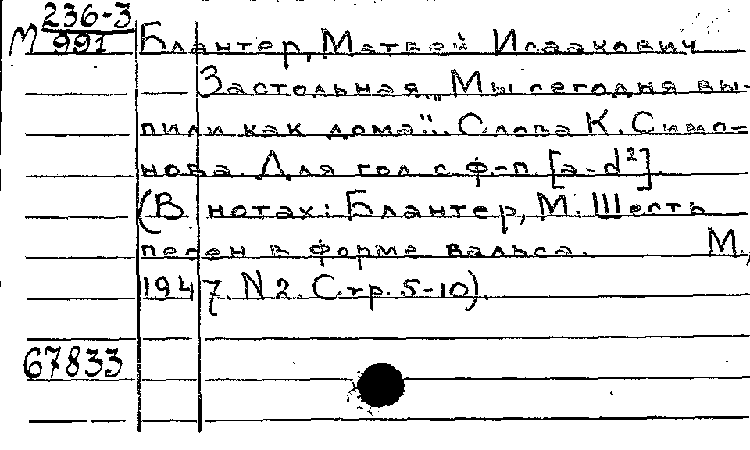 236-3
М 991 Блантер, Матвей Исаакович
Застольная. „Мы сегодня вы-
пили как дома". Слова К. Симо=
нова. Для гол. с ф-п. [a-d²].
(В нотах: Блантер, М. Шесть
песен в форме вальса. М.,
1947. N 2. Стр. 5-10).
67833